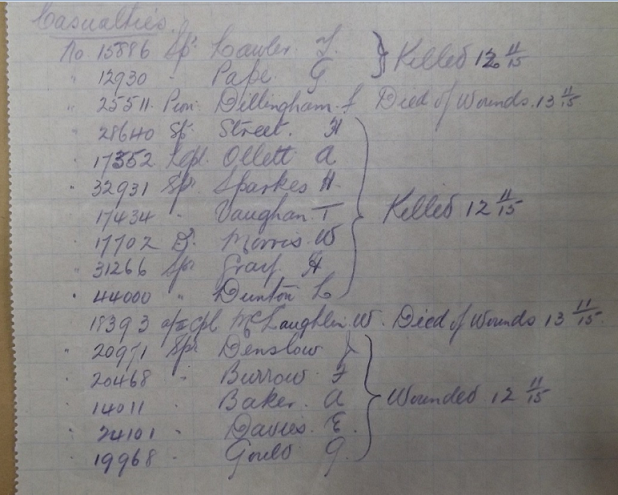 Casualties.
No 15886 Sp. Cawler J. } Killed 12 11/15
" 12930 " Pape G
" 25511 Pion. Dillingham. J Died of Wounds. 13 11/15
" 28640 Sp. Street. H
" 17352 Lcpl. Ollett A
" 32931 Spr. Sparkes H.
" 17434 " Vaughan. T } Killed 12 11/15
" 17702 D. Morris. W
" 31266 Spr Gray H
" 44000 " Dunton L
18393 a/2 Cpl. McLaughlin. W. Died of Wounds 13 11/15
" 20971 Spr. Denslow
" 20468 " Burrow F
" 14011 " Baker. A } Wounded 12 11/15
" 24101 " Davies. E.
" 19968 " Gould G.